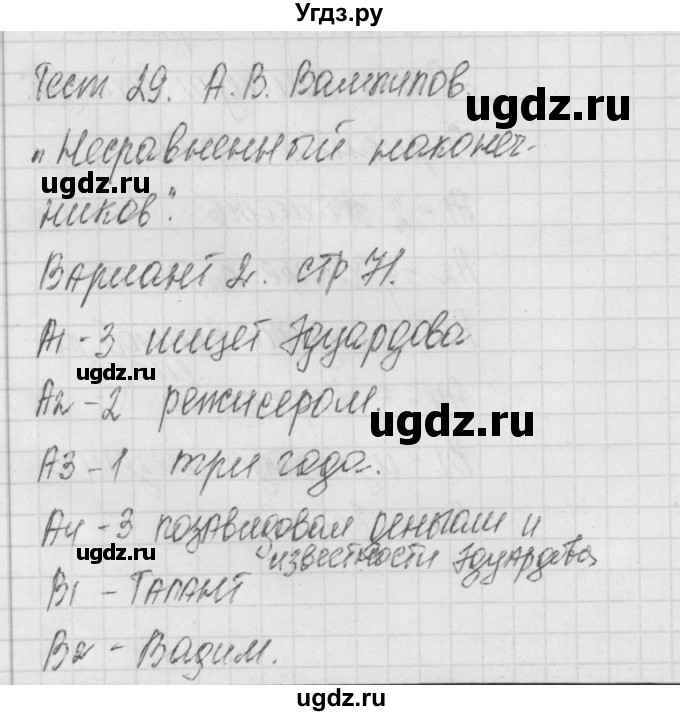 Угдз.ру
Тест 29. А. В. Вампилов.
ugdz.ru
"Несравненный наконеч-
ugdz.ru
ников".
Вариант 2. стр 71.
А1 - 3 ищет Эдуардова
ugdz.ru
А2 - 2 режисером.
ugdz.ru
А3 - 1 три года.
А4 - 3 позавидовал деньгам и
известности Эдуардова
ugdz.ru
В1 - Талант
В2 - Вадим.
ugdz.ru
ugdz.ru